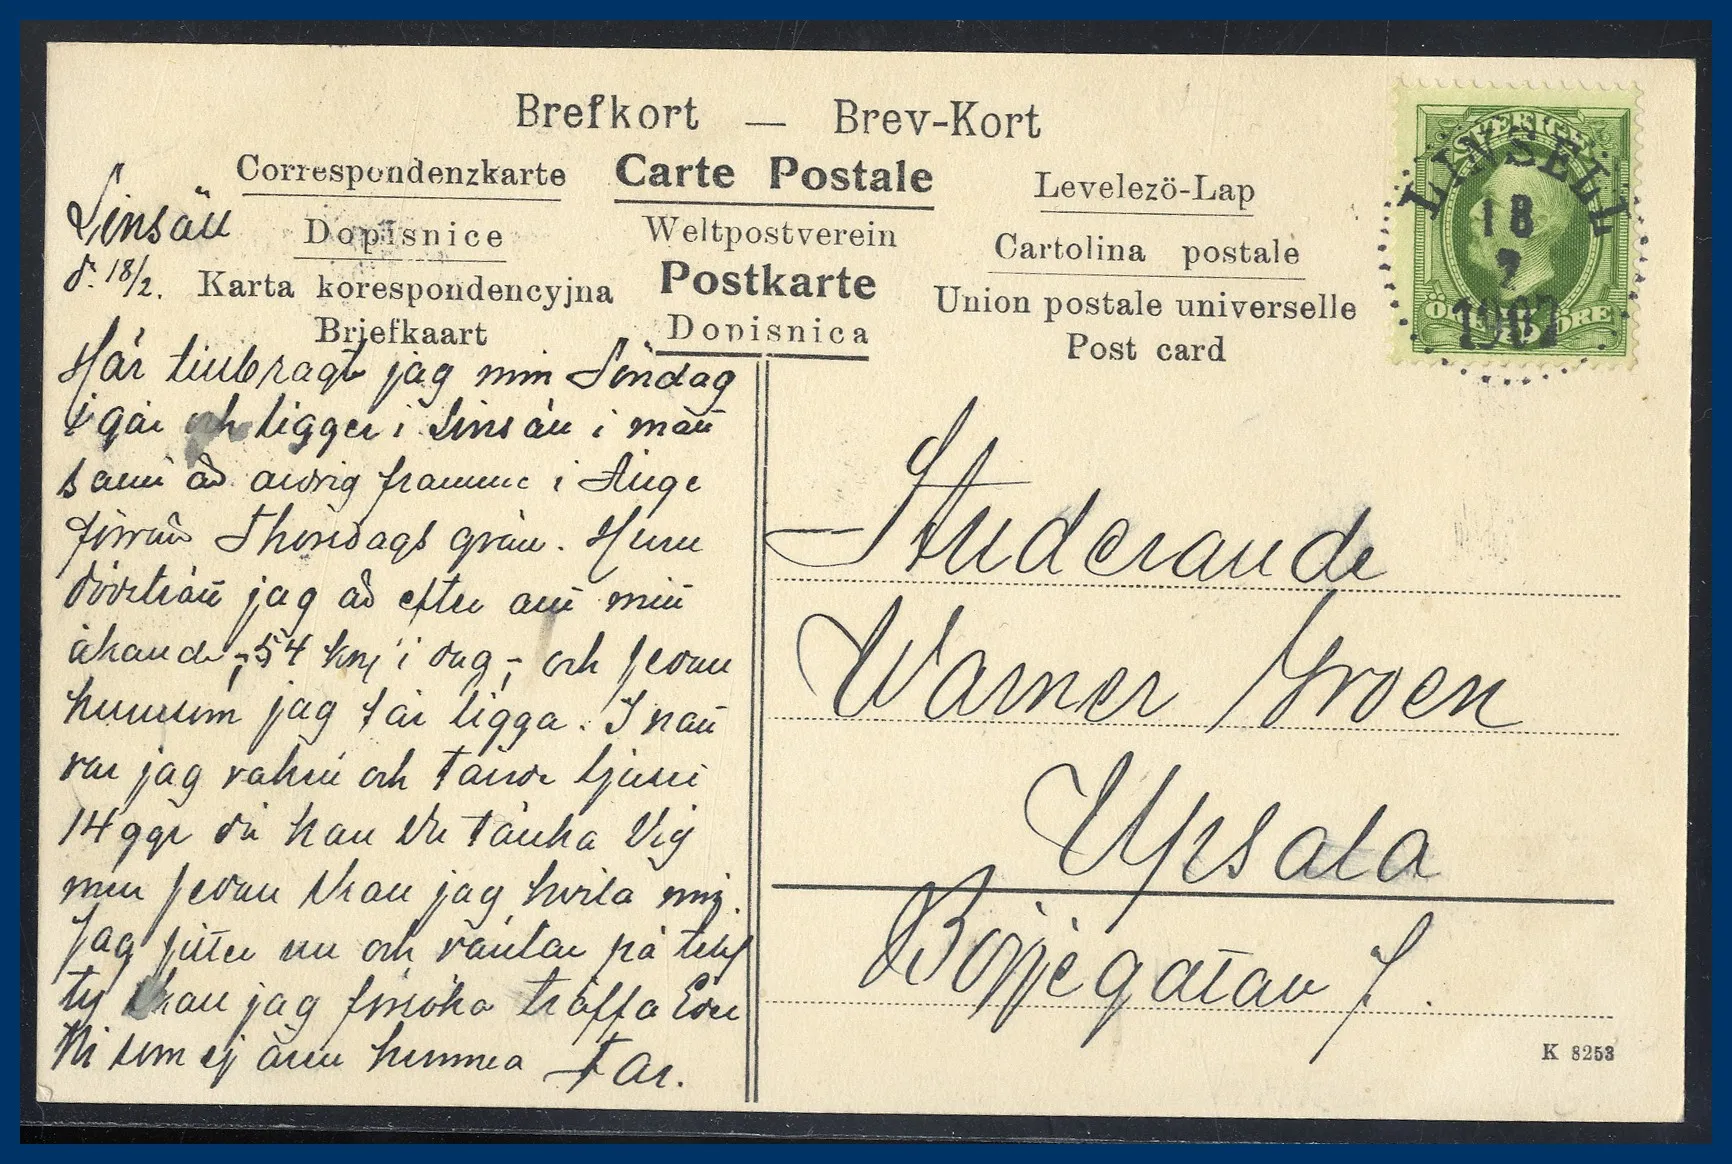 Brefkort — Brev-Kort
Correspondenzkarte Carte Postale Levelező-Lap
Dopisnice Weltpostverein Cartolina postale
Karta korespondencyjna Postkarte Union postale universelle
Briefkaart Dopisnica Post card
SVERIGE
ÖRE 5 ÖRE
LINSELL
18
2
1907
Linsäll
d. 18/2.
Här tillbragt jag min Söndag
i går och ligger i Linsäll i natt
samt är aldrig framme i Ånge
förrän Thorsdags qväll. Huru
jag är efter all min
åkande, 54 km i dag, och sedan
huru som jag får ligga. I natt
var jag vaken och tände ljuset
14 ggr så kan Du tänka Dig
men sedan skall jag hvila mig.
Jag sitter nu och väntar på telef
ty skall jag försöka träffa Eder
Ni som ej ännu hemma Far.
Studerande
Warner Groen
Upsala
Börjegatan 7.
K 8253